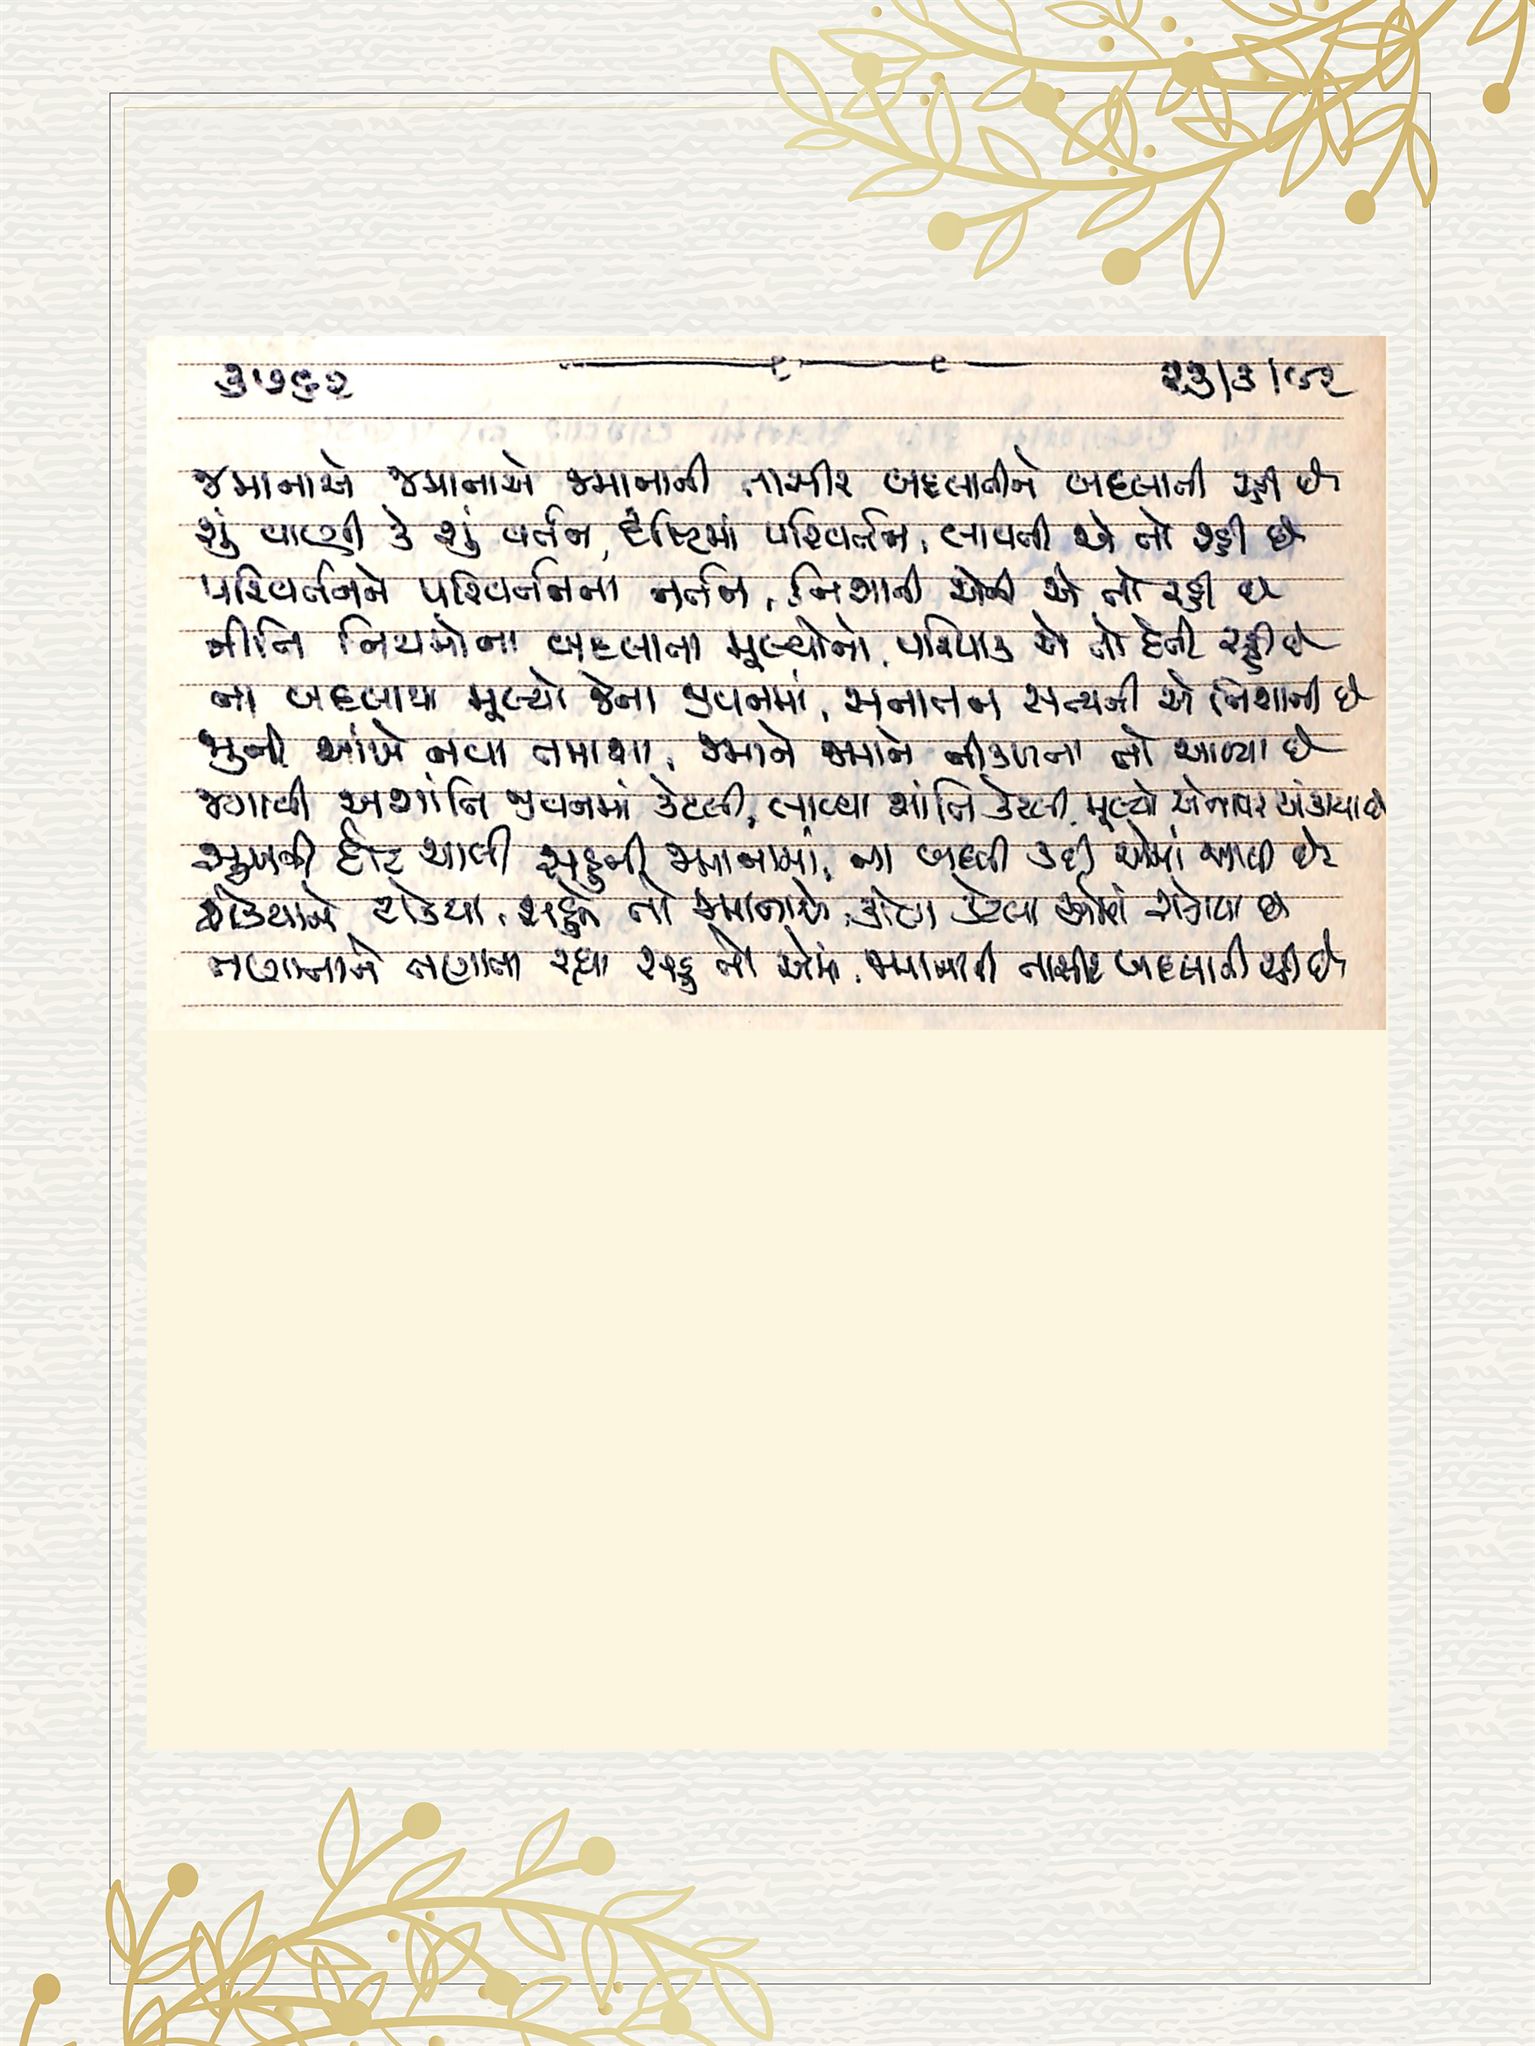 ૩૭૬૨ ૨૩/૩/૯૨
જમાનાએ જમાનાએ જમાનાની તાસીર બદલાતીને બદલાતી રહી છે
શું વાણી કે શું વર્તન, દૃષ્ટિમાં પરિવર્તન, લાવતી એ તો રહી છે
પરિવર્તનને પરિવર્તનના નર્તન, નિશાની એની એ તો રહી છે
નીતિ નિયમોના બદલાતા મૂલ્યોનો, પરિપાક એ તો દેતી રહી છે
ના બદલાયા મૂલ્યો જેના જીવનમાં, સનાતન સત્યની એ નિશાની છે
જુની આંખે નવા તમાશા, જમાને જમાને નીકળતા તો આવ્યા છે
જગાવી અશાંતિ જીવનમાં કેટલી, લાવ્યા શાંતિ કેટલી, મૂલ્યો એનાપર અંકાયા છે
સુખની દોટ ચાલી સહુની જમાનામાં, ના બદલી કદી એમાં આવી છે
ટોક્યા, સહુએ તો જમાનાએ, કેટલા એમાં છે
તણાતાને તણાતા રહ્યા સહુ તો એમાં, જમાનાની તાસીર બદલાતી રહી છે